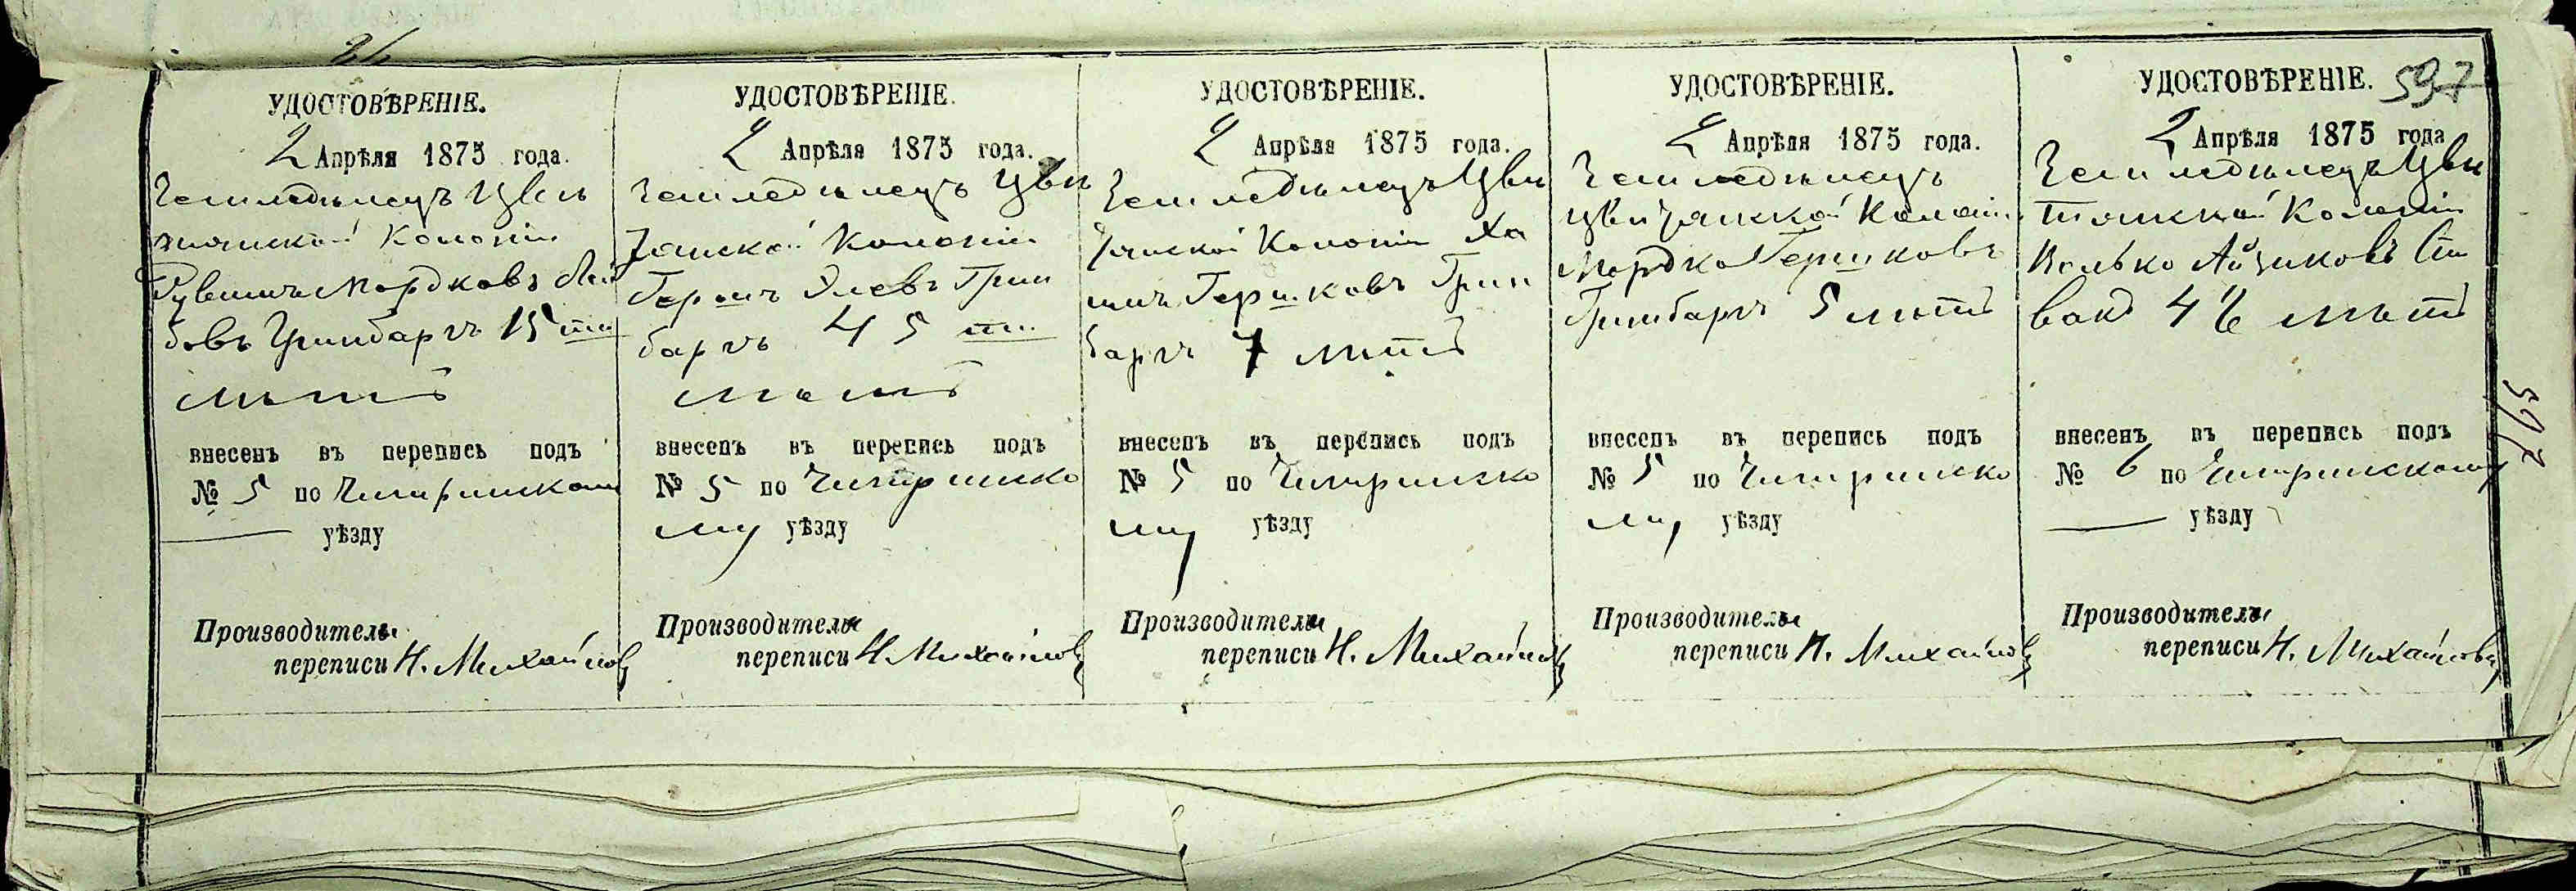 26
УДОСТОВѢРЕНІЕ.
2 Апрѣля 1875 года.
Земледѣлецъ Цвѣт
янской Колоніи
Рувинъ Мордковъ Лей
бовъ Гринбаргъ 15 ти
лѣтъ
внесенъ въ перепись подъ
№ 5 по Чигиринскому
уѣзду
Производитель
переписи Н. Михайловъ
УДОСТОВѢРЕНІЕ.
2 Апрѣля 1875 года.
Земледѣлецъ Цви
танской Колоніи
Гершъ Элевъ Грин
баргъ 45 ти
лѣтъ
внесенъ въ перепись подъ
№ 5 по Чигиринско
му уѣзду
Производитель
переписи Н. Михайловъ
УДОСТОВѢРЕНІЕ.
2 Апрѣля 1875 года.
Земледѣлецъ Цви
танской Колоніи Ха
имъ Гершковъ Грин
баргъ 7 лѣтъ
внесенъ въ перепись подъ
№ 5 по Чигиринско
му уѣзду
Производитель
переписи Н. Михайловъ
УДОСТОВѢРЕНІЕ.
2 Апрѣля 1875 года.
Земледѣлецъ
Цвитанской Колоніи
Мордко Гершковъ
Гринбаргъ 5 лѣтъ
внесенъ въ перепись подъ
№ 5 по Чигиринско
му уѣзду
Производитель
переписи Н. Михайловъ
597
УДОСТОВѢРЕНІЕ.
2 Апрѣля 1875 года
Земледѣлецъ Цви
тянской Колоніи
Волько Айзиковъ
46 лѣтъ
внесенъ въ перепись подъ
№ 6 по Чигиринскому
уѣзду
Производитель
переписи Н. Михайловъ
597